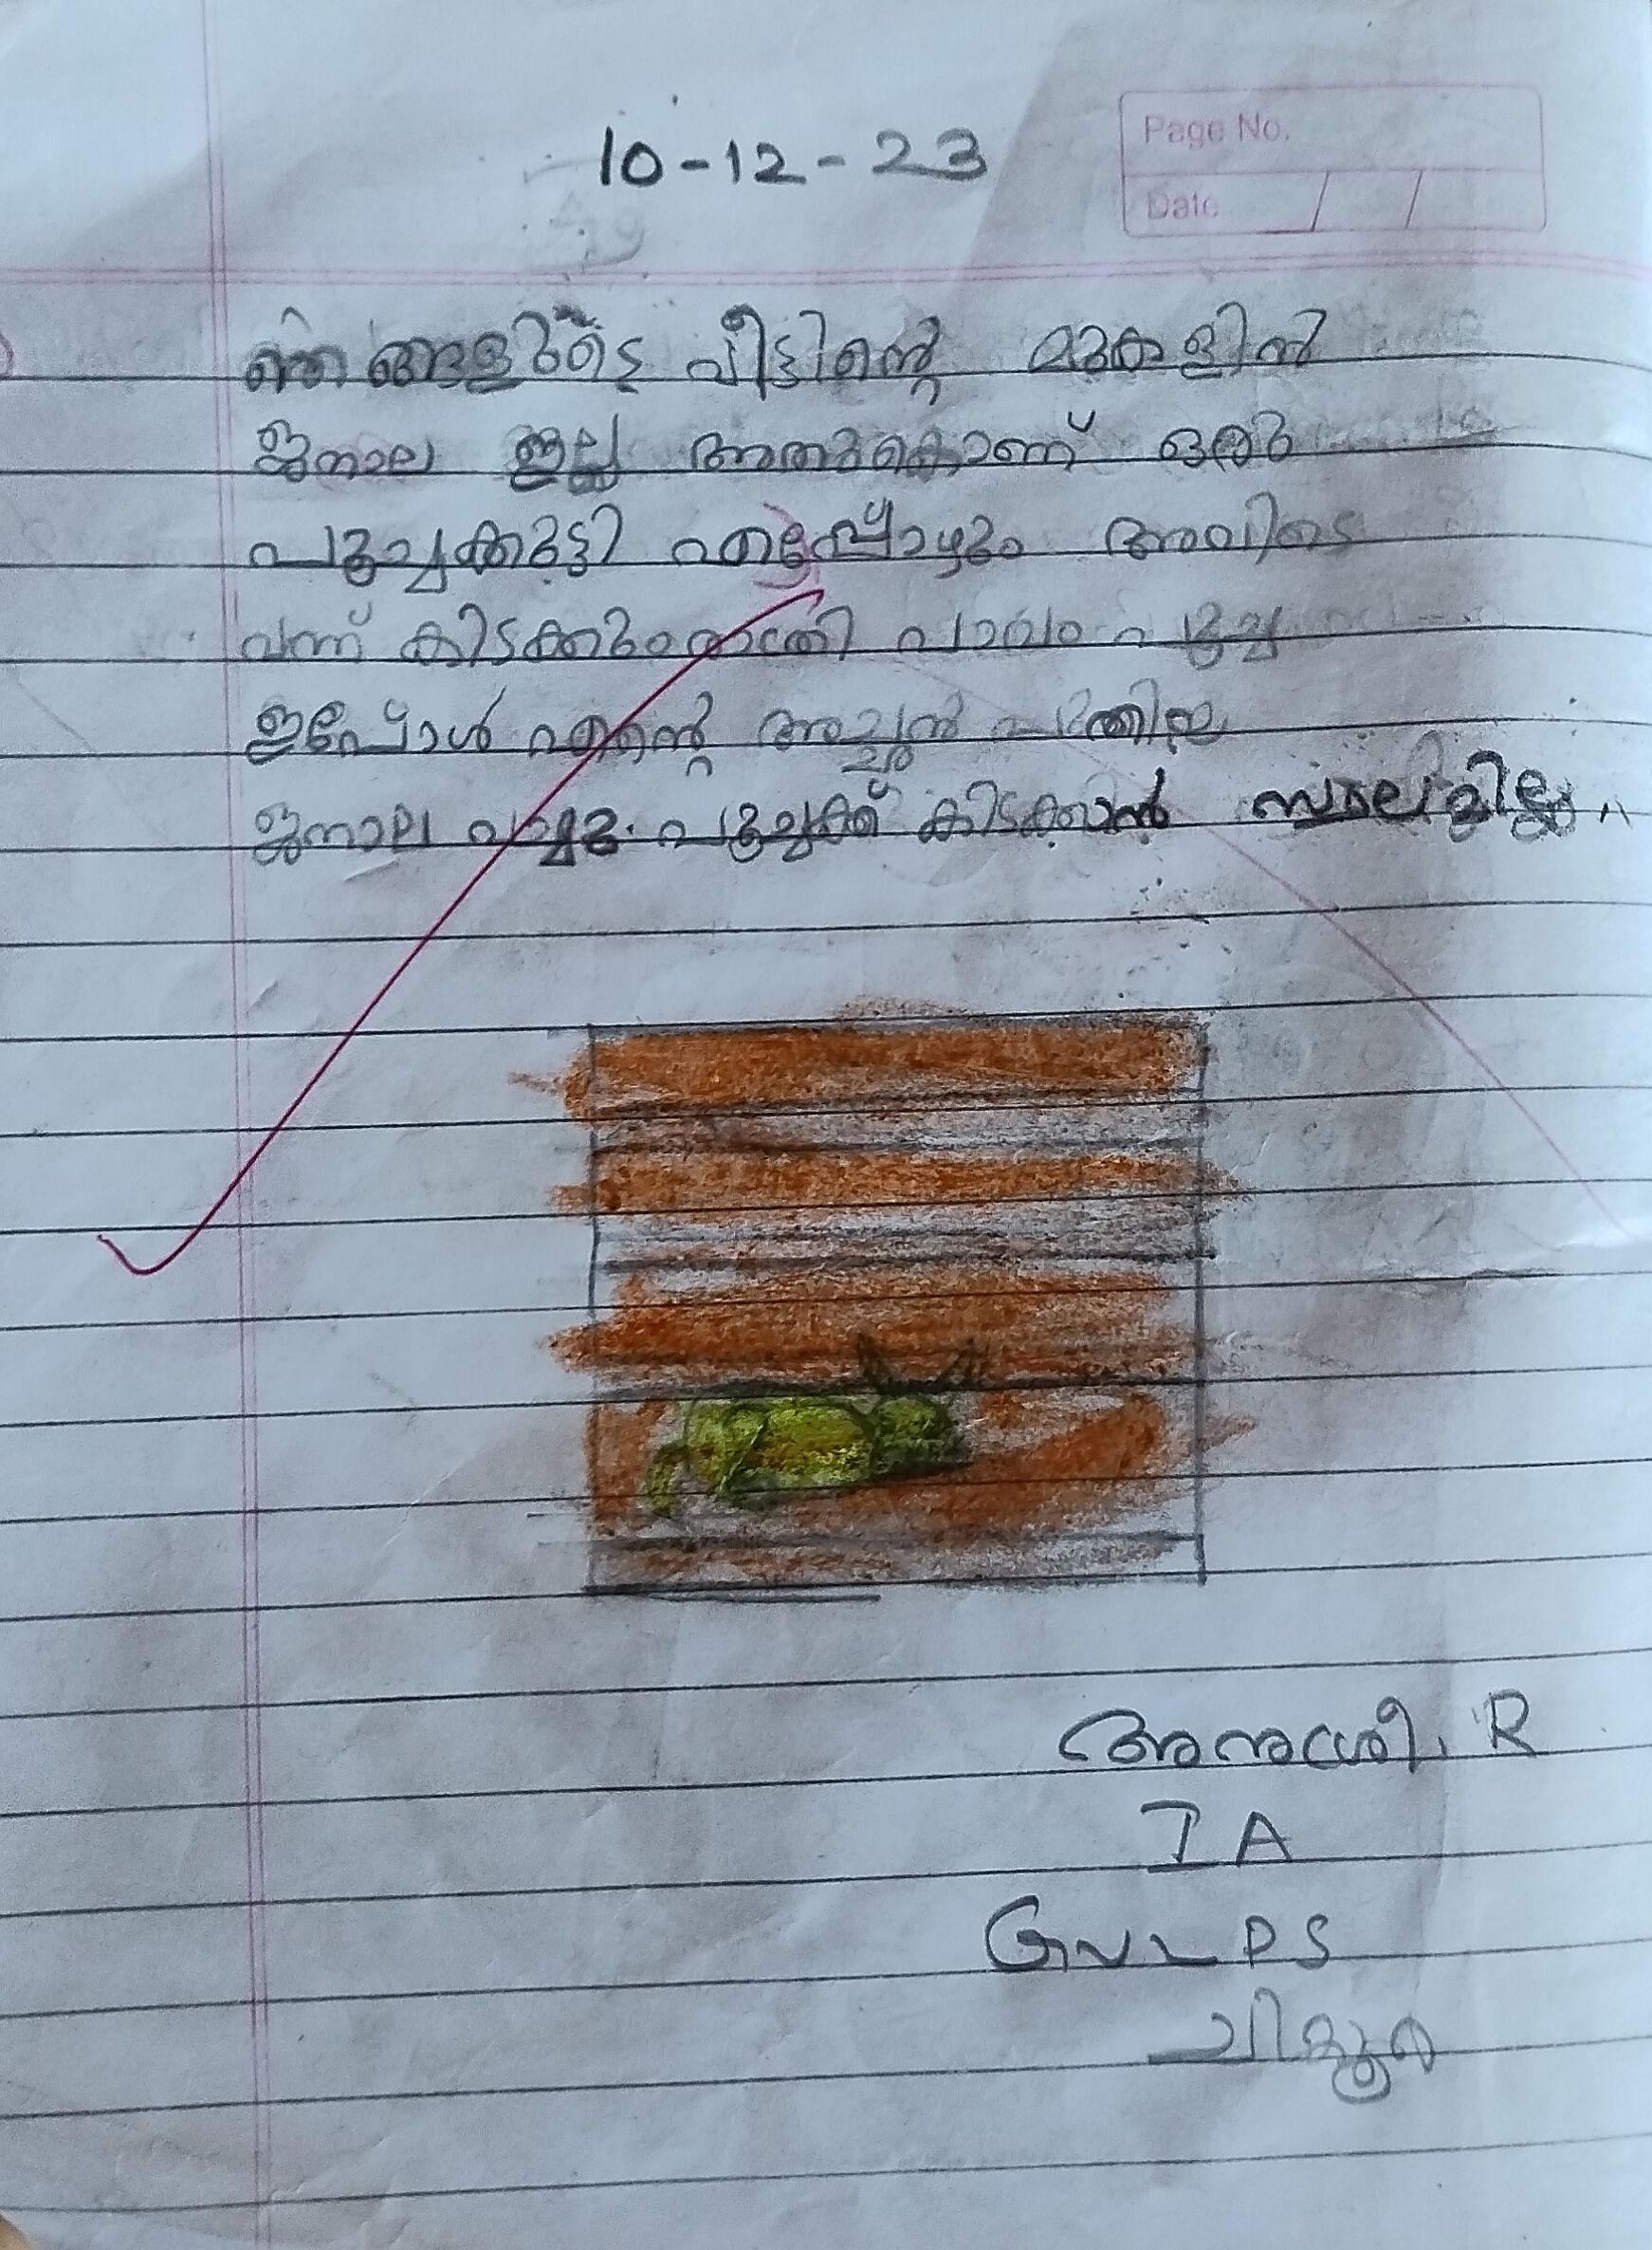 10-12-23
Page No.
Date / /
ഞങ്ങളുടെ വീട്ടിന്റെ മുകളിൽ
ജനാല ഇല്ല അതുകൊണ്ട് ഒരു
പൂച്ചക്കുട്ടി എപ്പോഴും അവിടെ
വന്ന് കിടക്കും രാത്രി പാവം പൂച്ച
ഇപ്പോൾ എന്റെ അച്ഛൻ
ജനാല വച്ചു. പൂച്ചക്ക് കിടക്കാൻ സ്ഥലമില്ല
അനുശ്രീ. R
I A
GVLPS
ചിറ്റൂർ